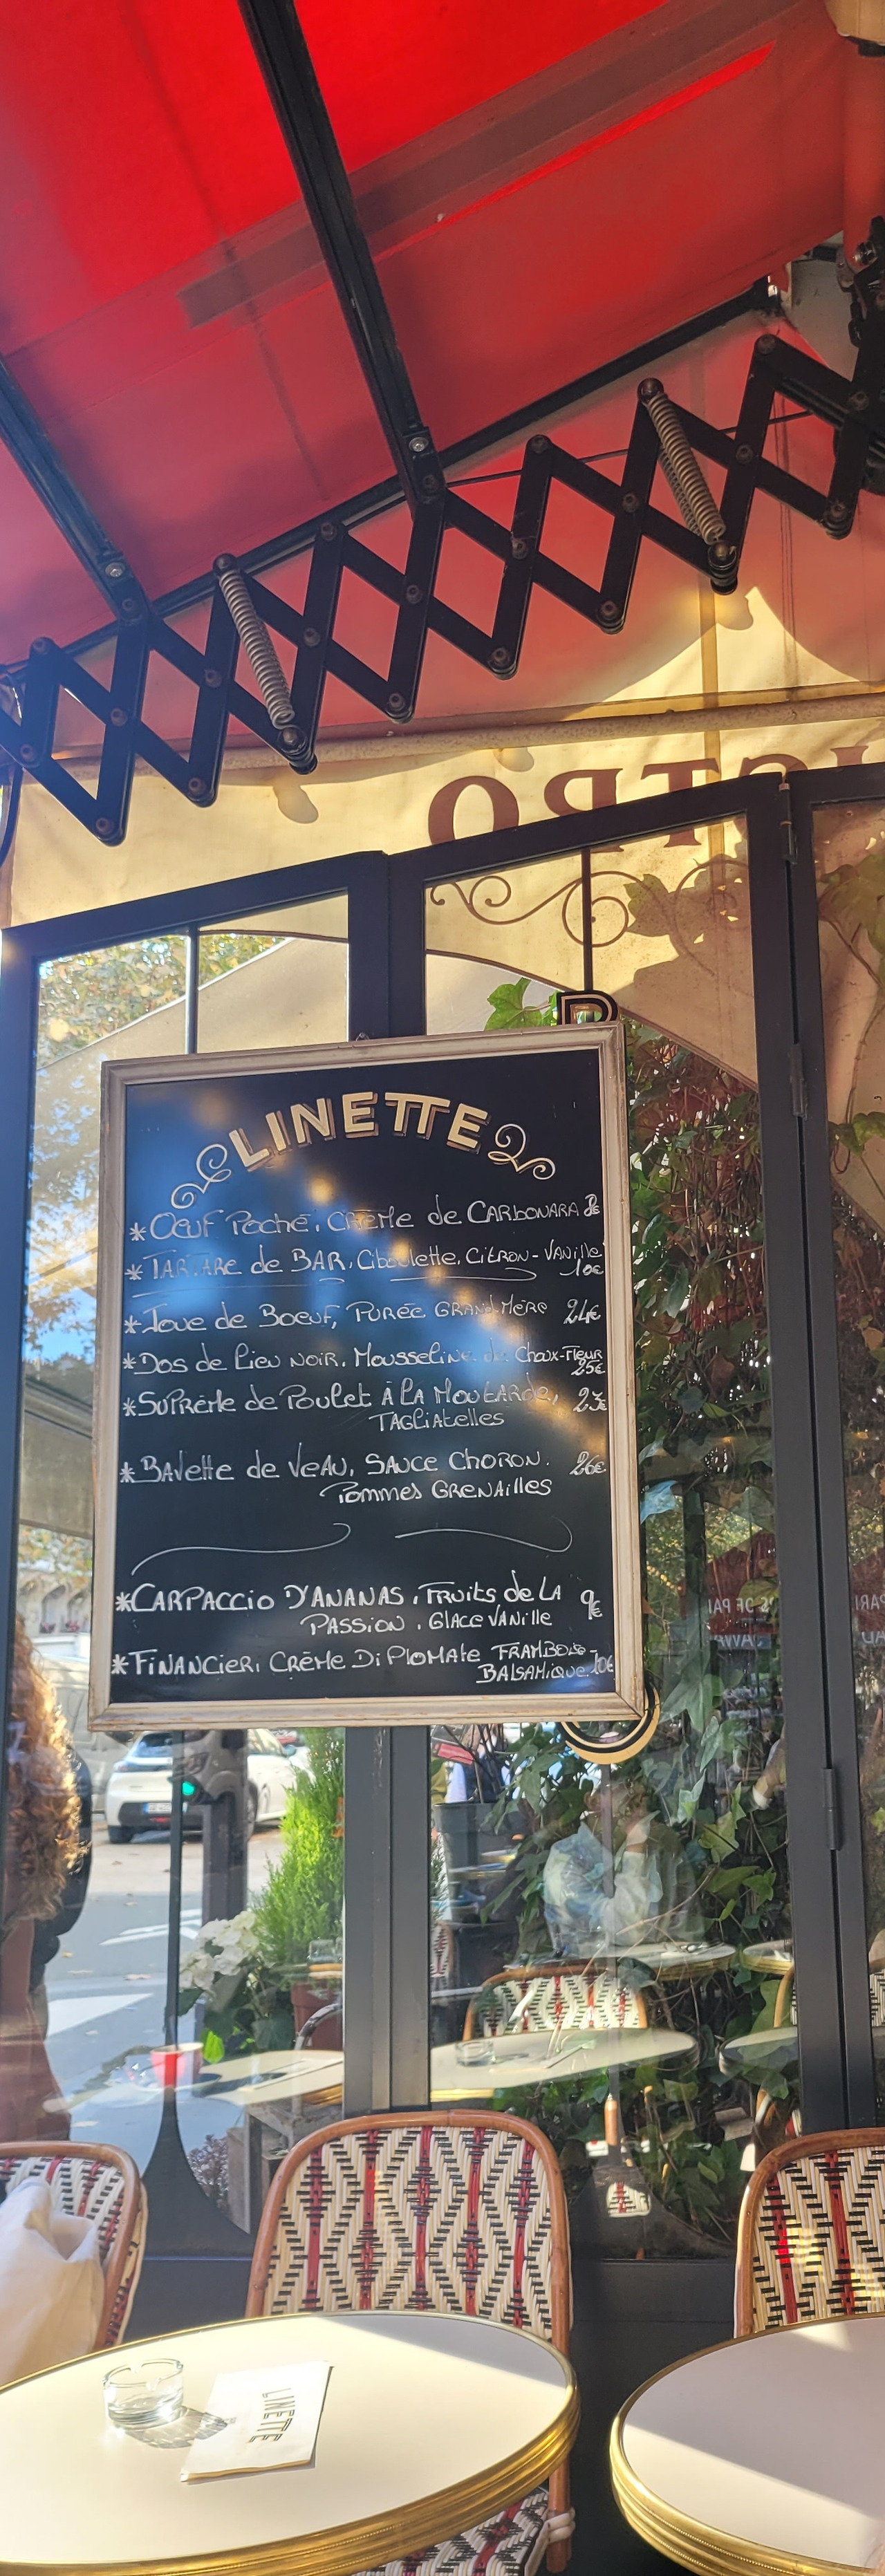 BISTRO
LINETTE
*Oeuf Poché, Crème de Carbonara 8€
*Tartare de BAR, Ciboulette, Citron-Vanille
10€
*Joue de Boeuf, Purée Grand-Mère 24€
*Dos de Lieu Noir, Mousseline de Choux-Fleur
25€
*Suprême de Poulet À La Moutarde, 23€
Tagliatelles
*Bavette de Veau, Sauce Choron. 26€
Pommes Grenailles
*Carpaccio D'Ananas, Fruits de la 9€
Passion, Glace Vanille
*Financier, Crème Diplomate Framboise-
Balsamique 10€
LINETTE